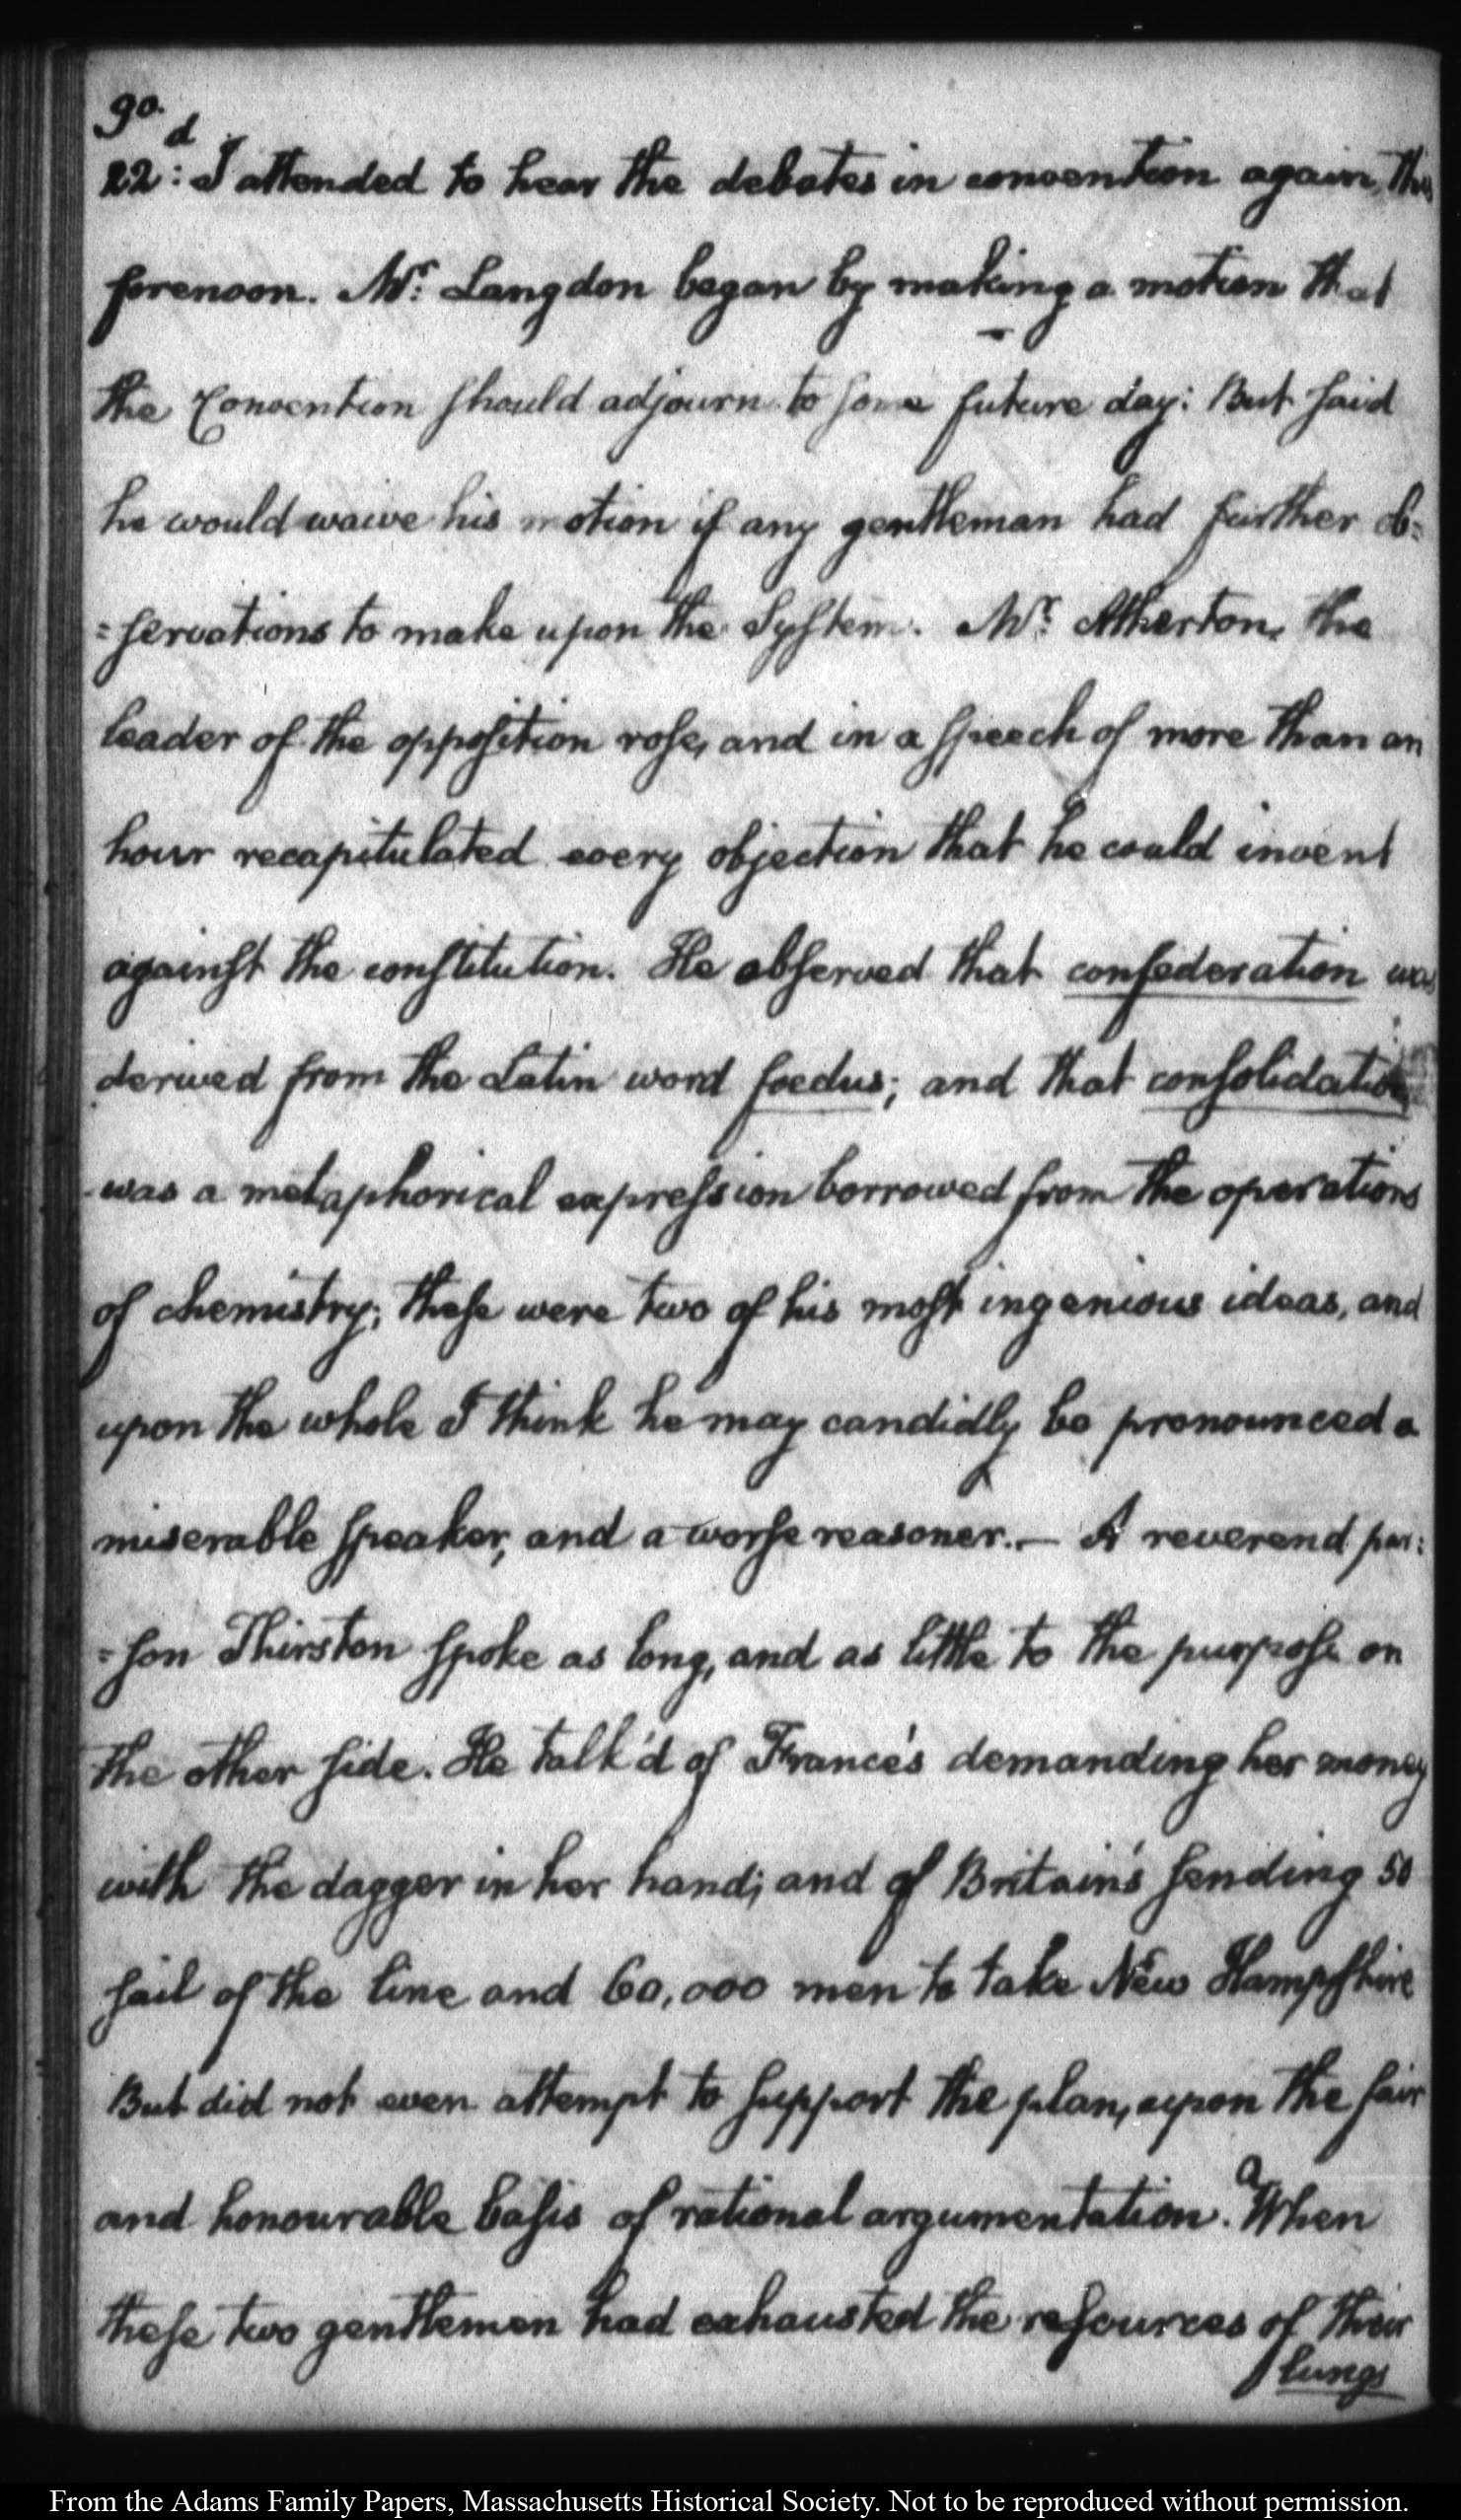 90.
22.d I attended to hear the debates in convention again, this
forenoon. Mr: Langdon began by making a motion that
the Convention should adjourn to some future day: But said
he would waive his motion if any gentleman had further ob=
=servations to make upon the System. Mr: Atherton, the
leader of the opposition rose, and in a speech of more than an
hour recapitulated every objection that he could invent
against the constitution. He observed that confederation was
derived from the Latin word foedus; and that consolidation
was a metaphorical expression borrowed from the operations
of chemistry; these were two of his most ingenious ideas, and
upon the whole I think he may candidly be pronounced a
miserable speaker, and a worse reasoner.— A reverend par=
=son Thirston spoke as long, and as little to the purpose on
the other side. He talk'd of France's demanding her money
with the dagger in her hand; and of Britain's sending 50
sail of the line and 60,000 men to take New Hampshire
But did not even attempt to support the plan, upon the fair
and honourable basis of rational argumentation. When
these two gentlemen had exhausted the resources of their
lungs
From the Adams Family Papers, Massachusetts Historical Society. Not to be reproduced without permission.